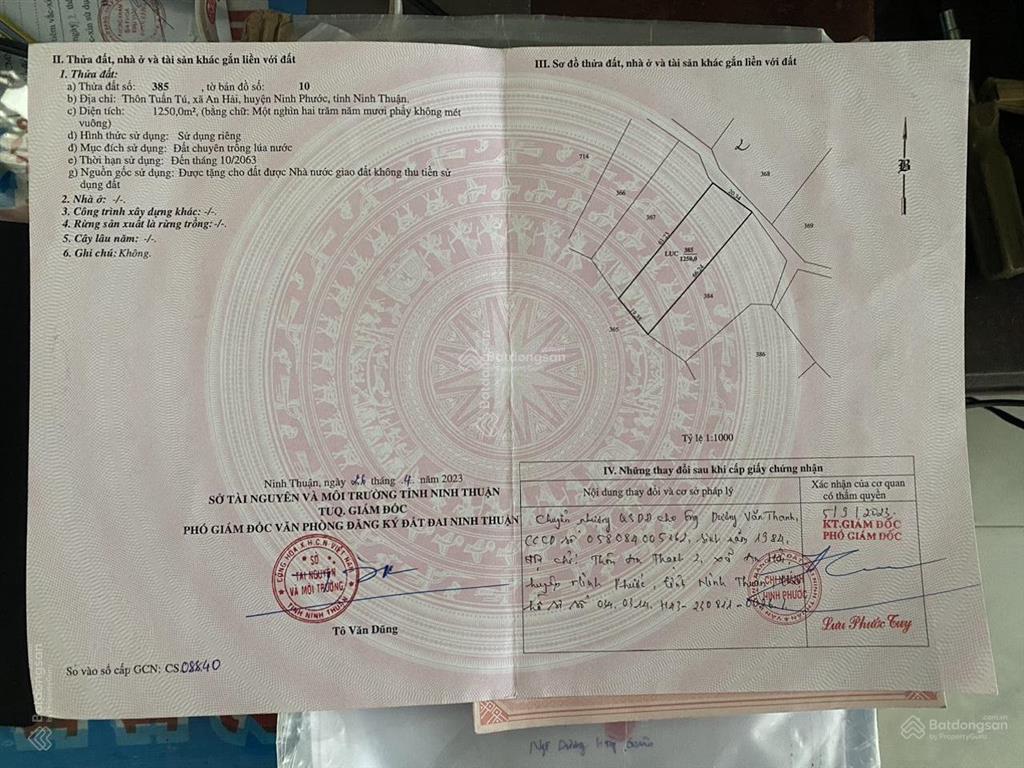 II. Thửa đất, nhà ở và tài sản khác gắn liền với đất
1. Thửa đất:
a) Thửa đất số: 385 , tờ bản đồ số: 10
b) Địa chỉ: Thôn Tuấn Tú, xã An Hải, huyện Ninh Phước, tỉnh Ninh Thuận.
c) Diện tích: 1250,0m², (bằng chữ: Một nghìn hai trăm năm mươi phẩy không mét
vuông)
d) Hình thức sử dụng: Sử dụng riêng
đ) Mục đích sử dụng: Đất chuyên trồng lúa nước
e) Thời hạn sử dụng: Đến tháng 10/2063
g) Nguồn gốc sử dụng: Được tặng cho đất được Nhà nước giao đất không thu tiền sử
dụng đất
2. Nhà ở: -/-.
3. Công trình xây dựng khác: -/-.
4. Rừng sản xuất là rừng trồng: -/-.
5. Cây lâu năm: -/-.
6. Ghi chú: Không.
Ninh Thuận, ngày tháng 4 năm 2023
SỞ TÀI NGUYÊN VÀ MÔI TRƯỜNG TỈNH NINH THUẬN
TUQ. GIÁM ĐỐC
PHÓ GIÁM ĐỐC VĂN PHÒNG ĐĂNG KÝ ĐẤT ĐAI NINH THUẬN
CỘNG HÒA X.H.C.N VIỆT NAM
SỞ
TÀI NGUYÊN
VÀ MÔI TRƯỜNG
TỈNH NINH THUẬN
Tô Văn Dũng
Số vào sổ cấp GCN: CS 08840
III. Sơ đồ thửa đất, nhà ở và tài sản khác gắn liền với đất
2
714
366
387
368
369
20.34
61.21
LUC 385
1250,0
66.26
384
19.38
365
386
B
Tỷ lệ 1:1000
IV. Những thay đổi sau khi cấp giấy chứng nhận
Nội dung thay đổi và cơ sở pháp lý
Xác nhận của cơ quan
có thẩm quyền
Chuyển nhượng QSDĐ cho Ông Dương Văn Thanh,
CCCD số sinh năm 1984,
địa chỉ: Thôn An Thạnh 2, xã An Hải,
huyện Ninh Phước, tỉnh Ninh Thuận
hồ sơ số
5/9/2023
KT.GIÁM ĐỐC
PHÓ GIÁM ĐỐC
CHI NHÁNH
NINH PHƯỚC
Lưu Phước Tuy
Batdongsan
Batdongsan
.com.vn
by PropertyGuru